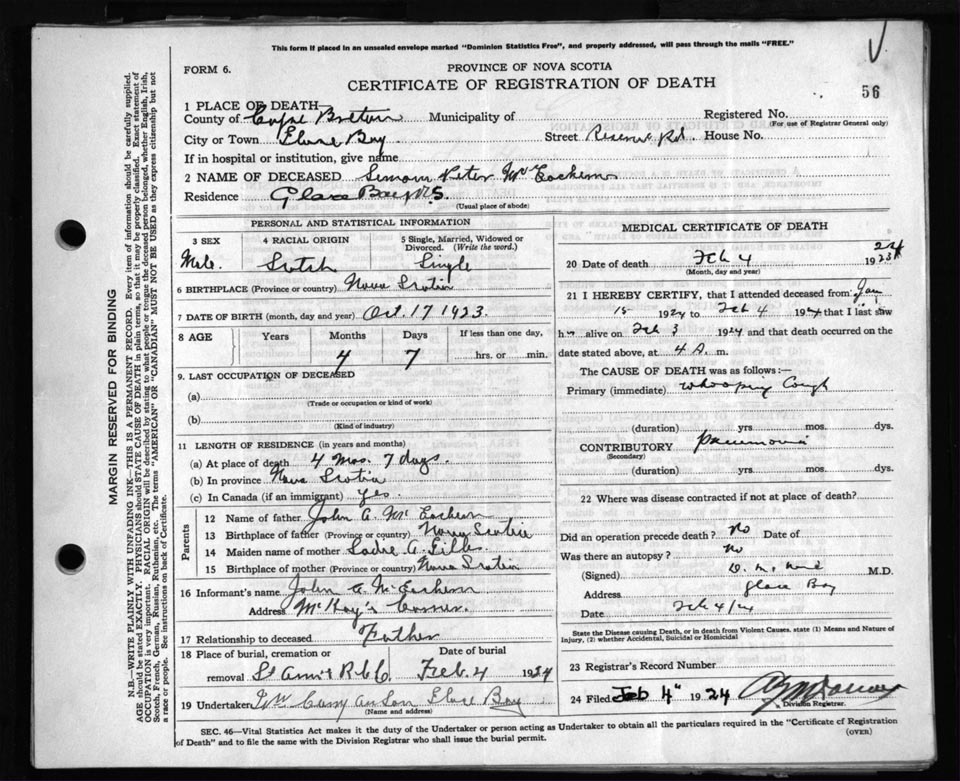 This form if placed in an unsealed envelope marked "Dominion Statistics Free", and properly addressed, will pass through the mails "FREE."
FORM 6.
PROVINCE OF NOVA SCOTIA
CERTIFICATE OF REGISTRATION OF DEATH
56
1 PLACE OF DEATH
County of Cape Breton Municipality of Registered No.
(For use of Registrar General only)
City or Town Glace Bay Street Reserve Rd. House No.
If in hospital or institution, give name
2 NAME OF DECEASED Simon Peter McEachern
Residence Glace Bay N.S.
(Usual place of abode)
PERSONAL AND STATISTICAL INFORMATION
3 SEX 4 RACIAL ORIGIN 5 Single, Married, Widowed or Divorced. (Write the word.)
Male Scotch Single
6 BIRTHPLACE (Province or country) Nova Scotia
7 DATE OF BIRTH (month, day and year) Oct. 17 1923.
8 AGE Years Months Days If less than one day,
4 7 hrs. or min.
9. LAST OCCUPATION OF DECEASED
(a)
(Trade or occupation or kind of work)
(b)
(Kind of industry)
11 LENGTH OF RESIDENCE (in years and months)
(a) At place of death 4 Mos. 7 days.
(b) In province Nova Scotia
(c) In Canada (if an immigrant) yes.
Parents
12 Name of father John A. McEachern
13 Birthplace of father (Province or country) Nova Scotia
14 Maiden name of mother Sadie A. Gillis
15 Birthplace of mother (Province or country) Nova Scotia
16 Informant's name John A. McEachern
Address McKay's Corner.
17 Relationship to deceased Father
18 Place of burial, cremation or Date of burial
removal St Ann's Feb. 4 1924
19 Undertaker Glace Bay
(Name and address)
MEDICAL CERTIFICATE OF DEATH
20 Date of death Feb 4 1923 24
(Month, day and year)
21 I HEREBY CERTIFY, that I attended deceased from Jan
15 1924 to Feb 4 1924 that I last saw
him alive on Feb 3 1924 and that death occurred on the
date stated above, at 4 A. m.
The CAUSE OF DEATH was as follows:—
Primary (immediate) Whooping Cough
(duration) yrs. mos. dys.
CONTRIBUTORY pneumonia
(Secondary)
(duration) yrs mos. dys.
22 Where was disease contracted if not at place of death?
Did an operation precede death? No Date of
Was there an autopsy? No
(Signed) M.D.
Address Glace Bay
Date Feb 4/24
State the Disease causing Death, or in death from Violent Causes. state (1) Means and Nature of
Injury, (2) whether Accidental, Suicidal or Homicidal
23 Registrar's Record Number
24 Filed Feb 4th 1924
Division Registrar.
SEC. 46—Vital Statistics Act makes it the duty of the Undertaker or person acting as Undertaker to obtain all the particulars required in the "Certificate of Registration
of Death" and to file the same with the Division Registrar who shall issue the burial permit.
(OVER)
MARGIN RESERVED FOR BINDING
N.B.—WRITE PLAINLY WITH UNFADING INK—THIS IS A PERMANENT RECORD. Every item of information should be carefully supplied.
AGE should be stated EXACTLY. PHYSICIANS should STATE CAUSE OF DEATH in plain terms, so that it may be properly classified. Exact statement of
OCCUPATION is very important. RACIAL ORIGIN will be described by stating to what people or tongue the deceased person belonged, whether English, Irish,
Scotch, French, German, Russian, Ruthenian, etc. The terms "AMERICAN" OR "CANADIAN" MUST NOT BE USED as they express citizenship but not
a race or people. See instructions on back of Certificate.